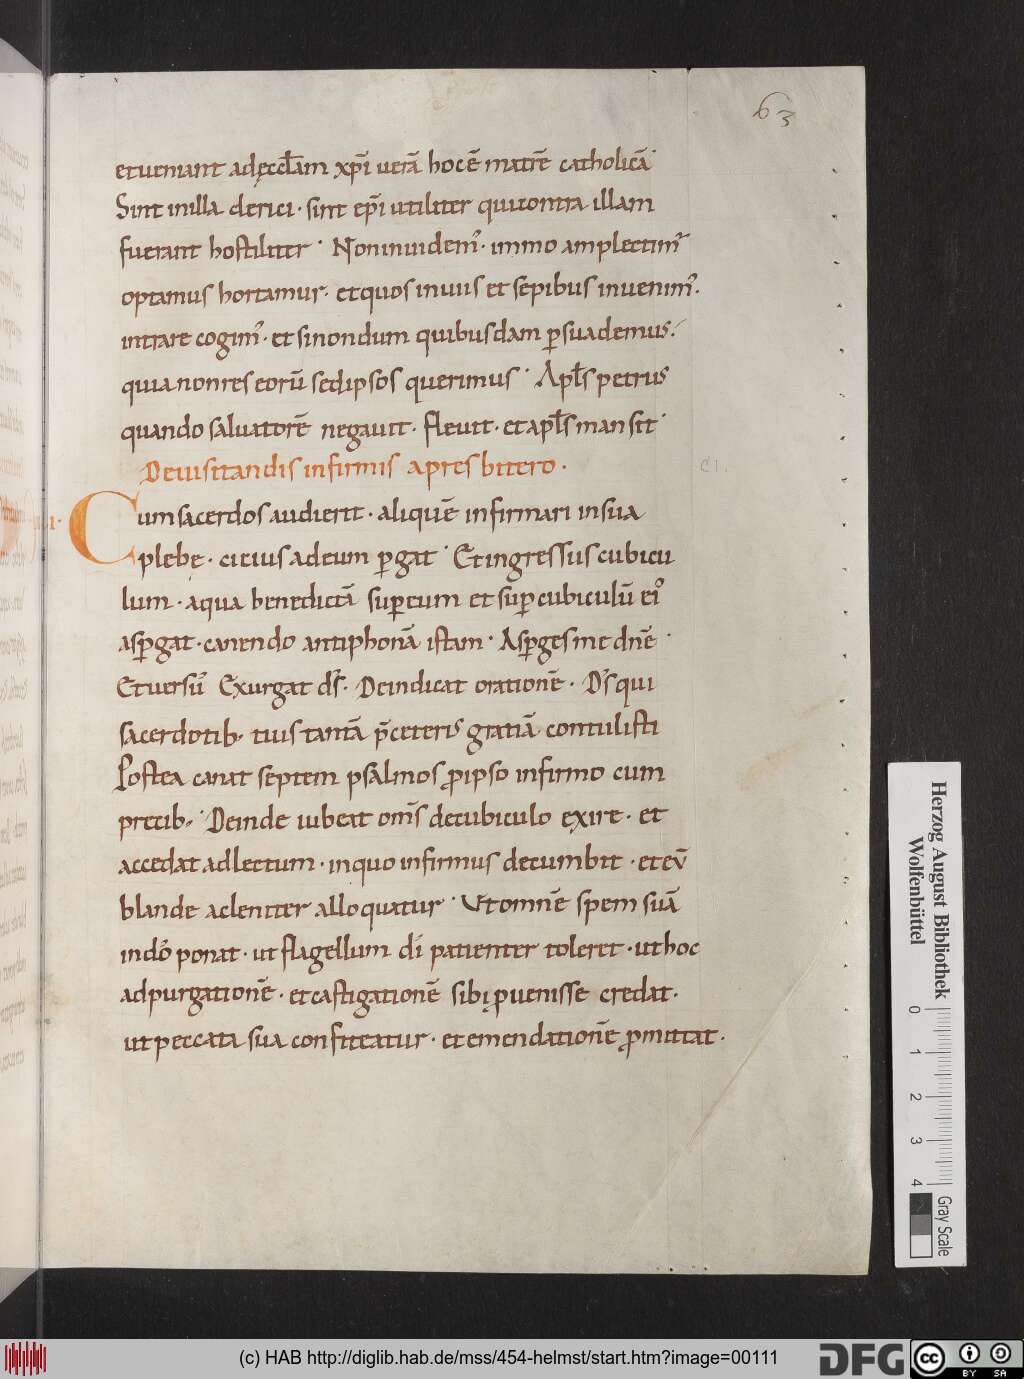 63
et ueniant ad ęccl̄am xp̄i uerā hoc ē matrē catholicā·
Sint in illa clerici · sint ep̄i utiliter qui contra illam
fuerant hostiliter · Non inuidem᷒ · immo amplectim᷒
optamus hortamur · et quos in uiis et sepibus inuenim᷒ ·
intrare cogim᷒ · et si nondum quibusdam ꝑsuademus ·
quia non res eorū sed ipsos querimus · Apl̄s petrus
quando saluatorē negauit · fleuit · et apl̄s mansit ·
De uisitandis infirmis a presbitero ·
CI.
Cum sacerdos audierit · aliquē infirmari in sua
plebę · citius ad eum ꝑgat · Et ingressus cubicu
lum · aqua benedictā suꝑ eum et suꝑ cubiculū ei᷒
asꝑgat · canendo antiphonā istam · Asꝑges me dn̄e ·
Et uersū᷒ Exurgat ds̄ · Dein dicat orationē · Ds̄ qui
sacerdotib; tuis tantā p̄ ceteris gratiā contulisti
Postea canat septem psalmos ꝓ ipso infirmo cum
precib; · Deinde iubeat om̄s de cubiculo exire · et
accedat ad lectum · in quo infirmus decumbit · et eū
blande ac leniter alloquatur · Ut omnē spem suā
in dō ponat · ut flagellum dī patienter toleret · ut hoc
ad purgationē · et castigationē sibi ꝓuenisse credat ·
ut peccata sua confiteatur · et emendationē ꝓmittat ·
Herzog August Bibliothek
Wolfenbüttel
0 1 2 3 4
Gray Scale
(c) HAB http://diglib.hab.de/mss/454-helmst/start.htm?image=00111
DFG
cc BY SA